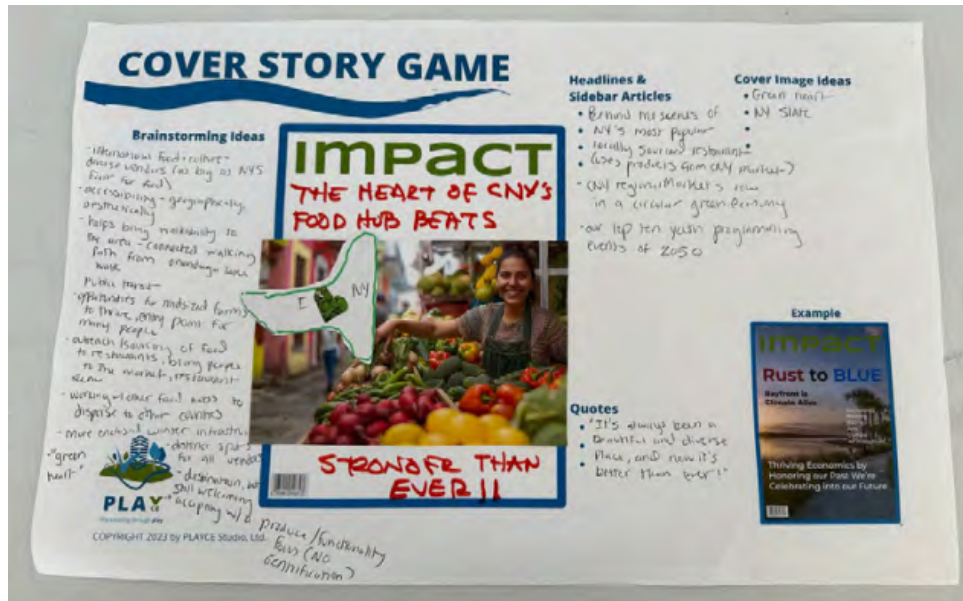 COVER STORY GAME
Brainstorming Ideas
- international food + culture -
diverse vendors (as big as NYS
Fair for food)
- accessibility - geographically,
aesthetically
- helps bring walkability to
the area - connected walking
path from onondaga lake
public transit
- opportunities for midsized farms
to thrive, entry point for
many people
- outreach/sourcing of food
to restaurants, bring people
to the market, restaurant
- working w/ other food to
disperse to other counties
- more enclosed winter infrastru
- distinct spots
for all vendors
- "green
heart"
- destination, but
still welcoming
accepting w/a
produce/functionality
focus (NO
gentrification)
PLAYCE
COPYRIGHT 2023 by PLAYCE Studio, Ltd.
IMPACT
THE HEART OF CNY'S
FOOD HUB BEATS
I NY
STRONGER THAN
EVER!!
Headlines &
Sidebar Articles
• Behind the scenes of
• NY's most popular
• locally sourced restaurant
• (uses products from CNY market)
- CNY regional Market's role
in a circular green economy
- our top ten youth programming
events of 2050
Cover Image Ideas
• Green heart
• NY State
Quotes
• "It's always been a
• beautiful and diverse
• place, and now it's
better than ever!"
Example
IMPACT
Rust to BLUE
Bayfront is
Climate Alive
Thriving Economics by
Honoring our Past We're
Celebrating into our Future